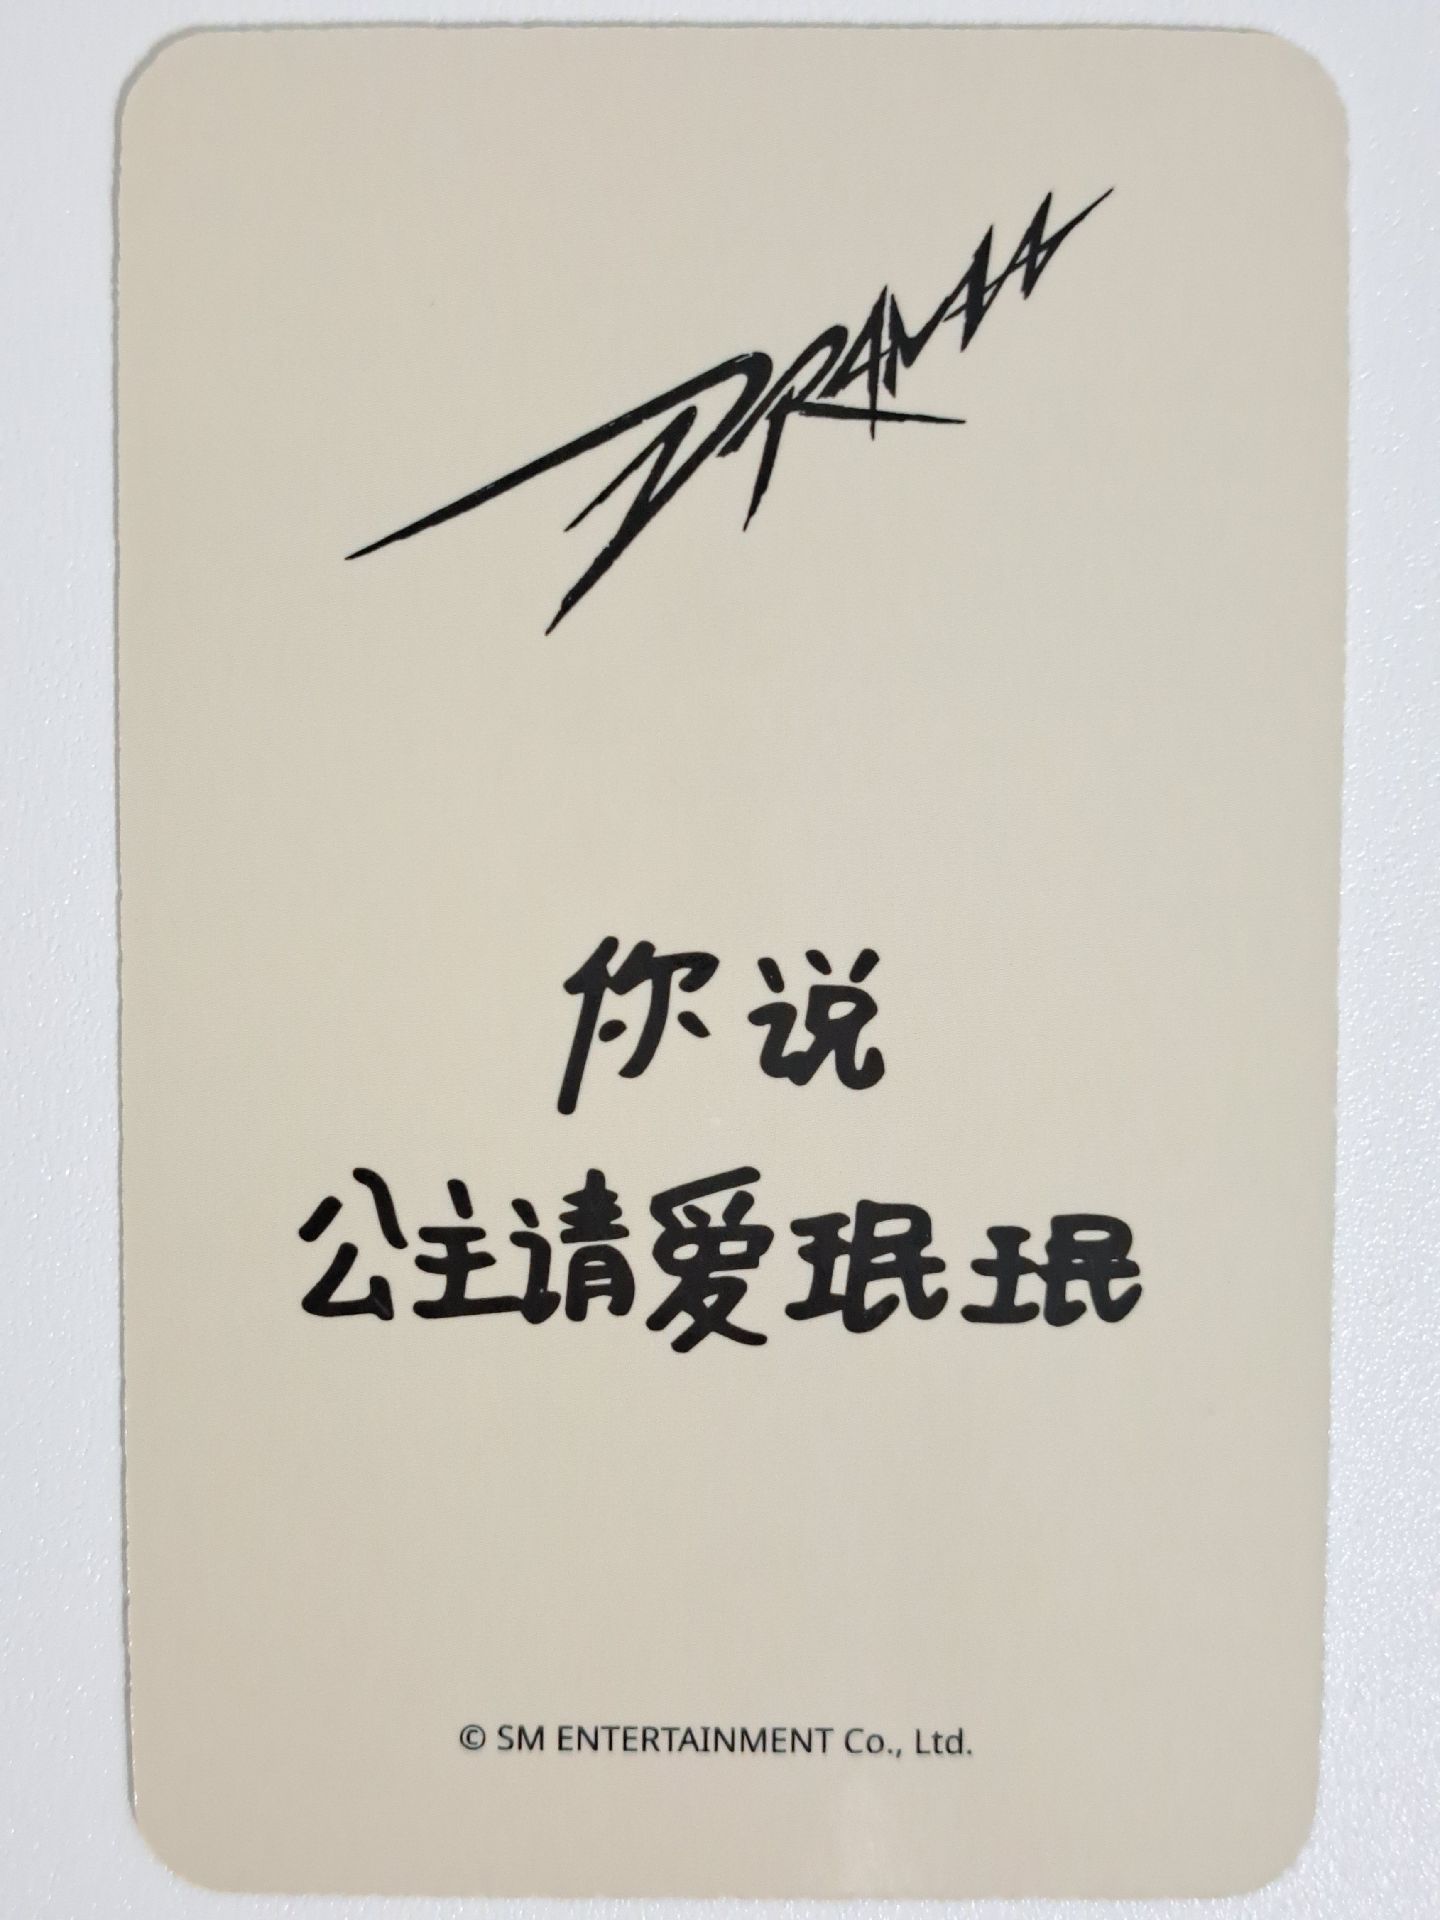 DRAMA
你说
公主请爱珉珉
© SM ENTERTAINMENT Co., Ltd.